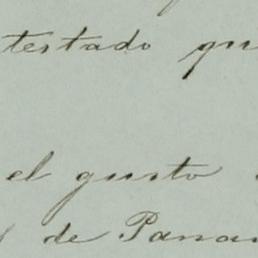 testado qu
el gusto
de Pana